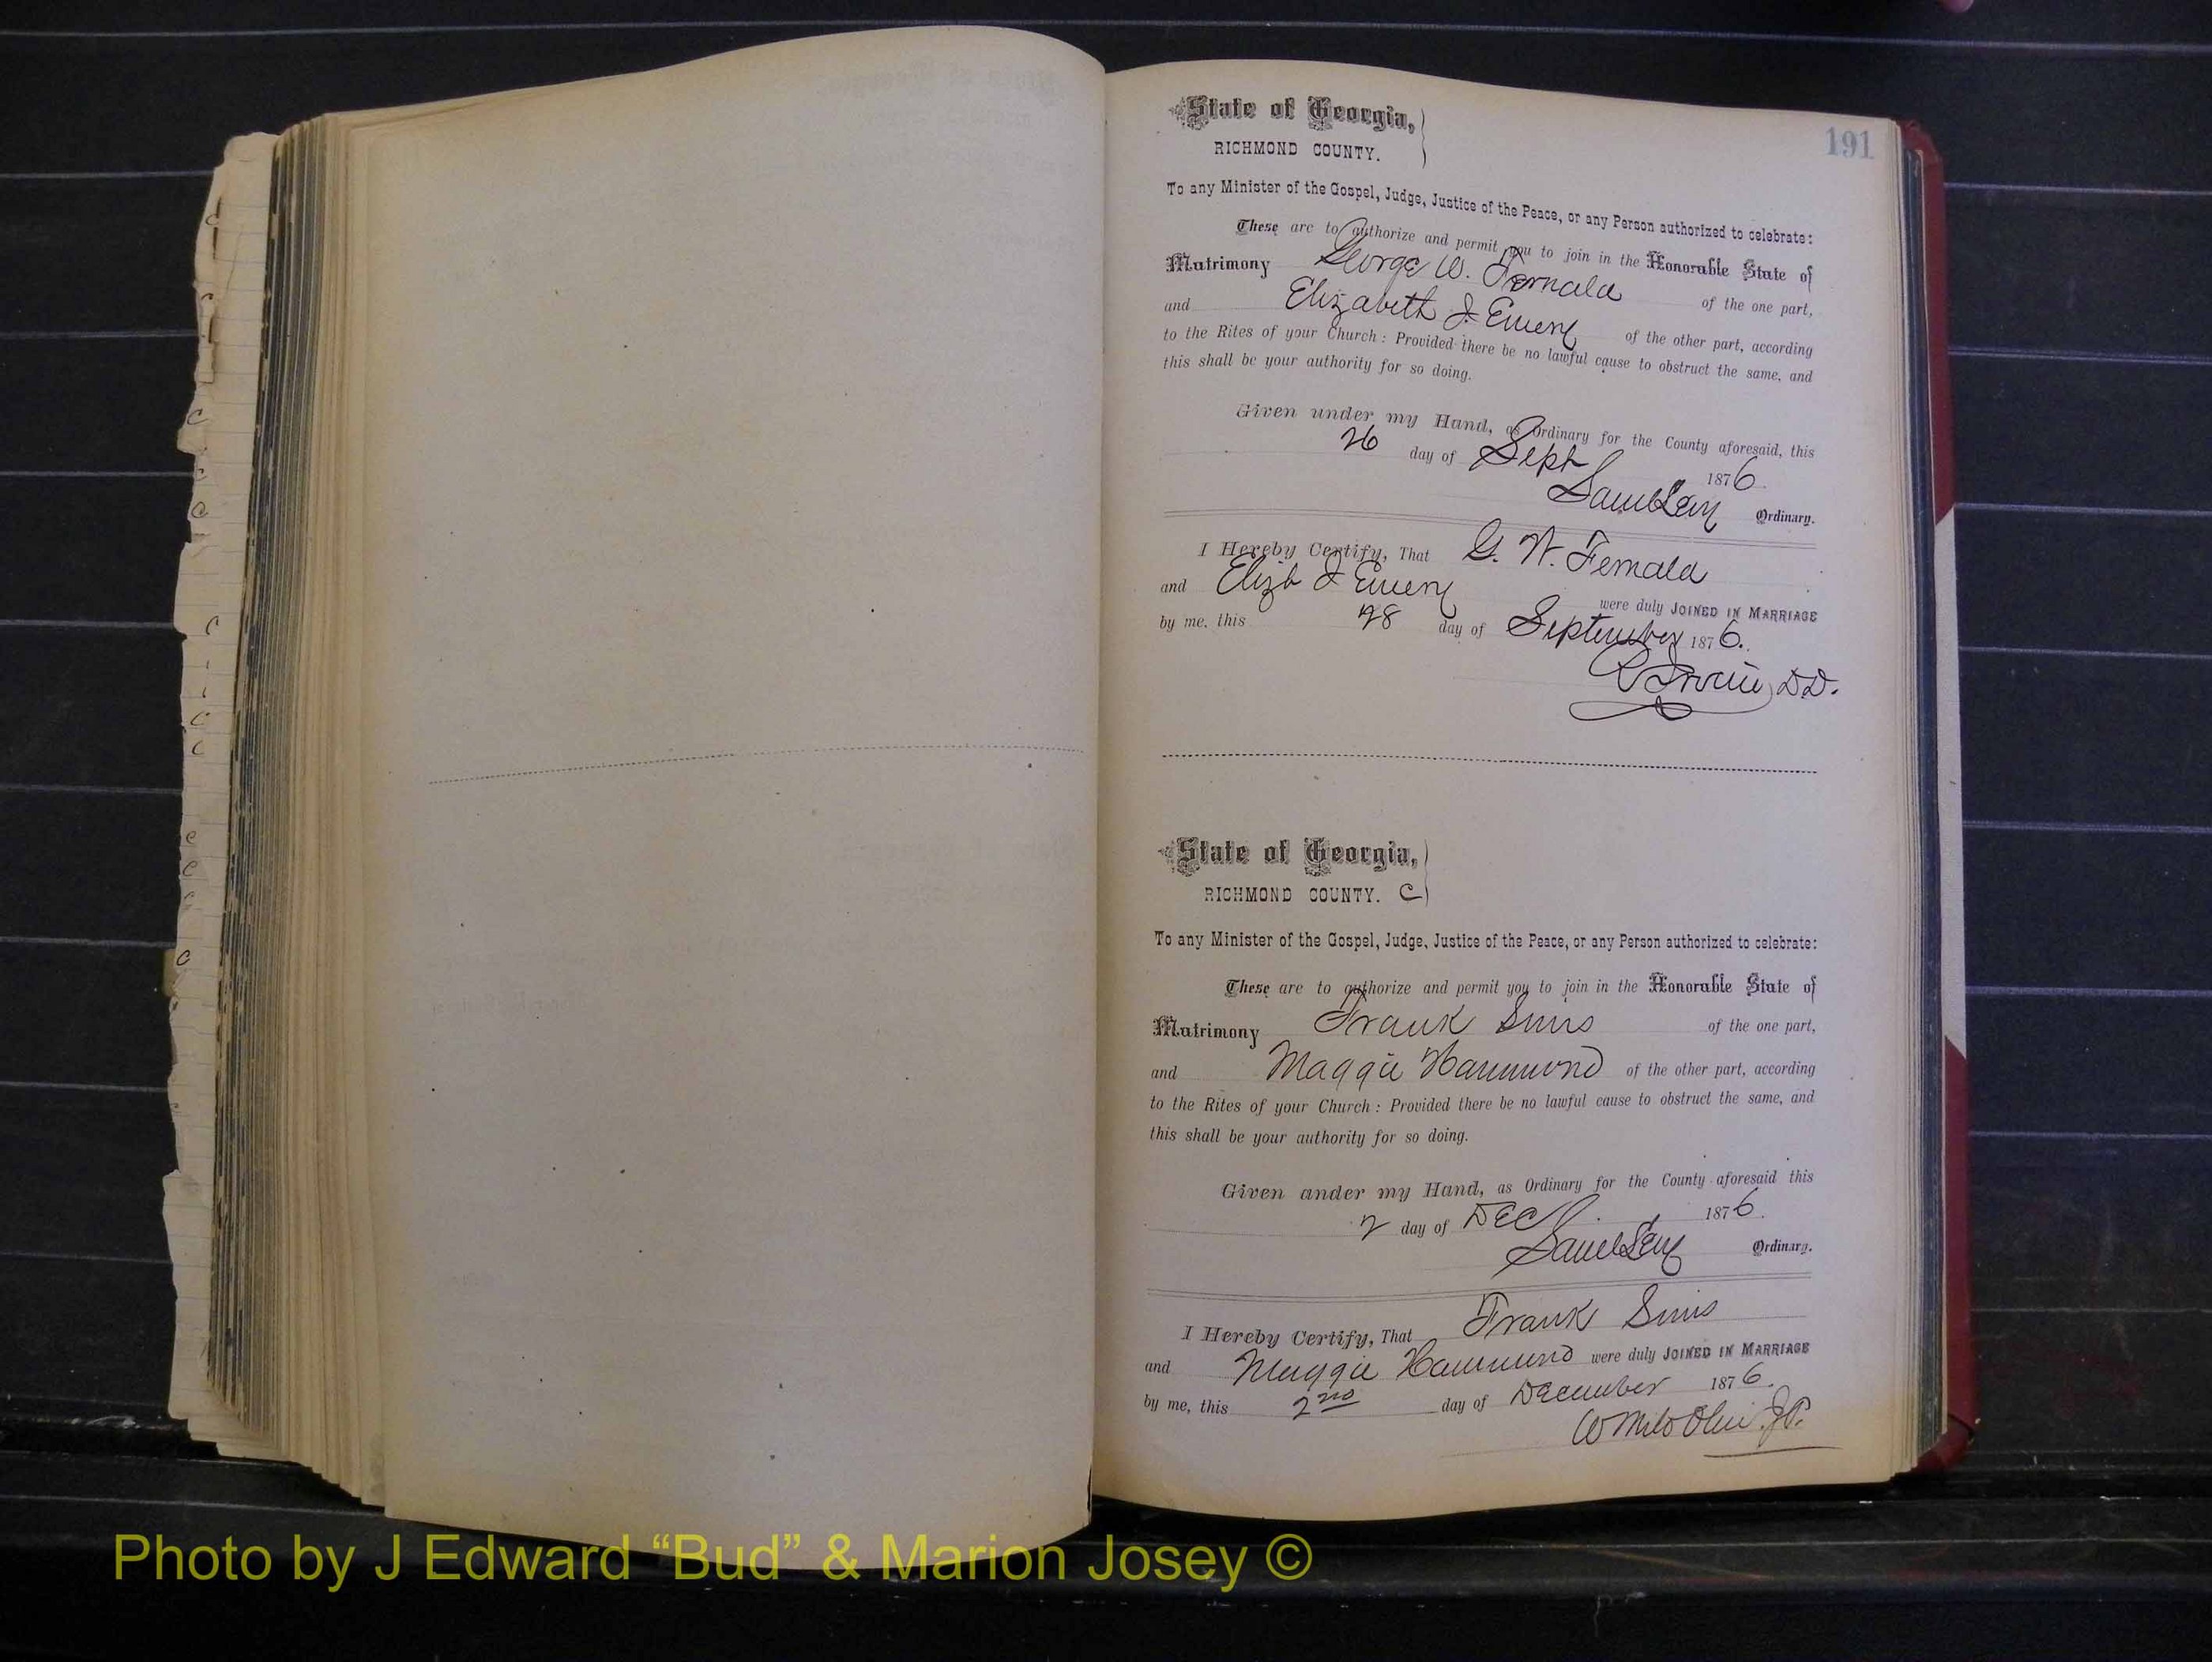 191
State of Georgia,
RICHMOND COUNTY.
To any Minister of the Gospel, Judge, Justice of the Peace, or any Person authorized to celebrate:
These are to authorize and permit you to join in the Honorable State of
Matrimony George W. Fernald of the one part,
and Elizabeth J. Emery of the other part, according
to the Rites of your Church: Provided there be no lawful cause to obstruct the same, and
this shall be your authority for so doing.
Given under my Hand, as Ordinary for the County aforesaid, this
26 day of Sept 1876
Saml Levy Ordinary.
I Hereby Certify, That G. W. Fernald
and Elizb J Emery were duly JOINED IN MARRIAGE
by me, this 28 day of September 1876.
Irvine D.D.
State of Georgia,
RICHMOND COUNTY. C
To any Minister of the Gospel, Judge, Justice of the Peace, or any Person authorized to celebrate:
These are to authorize and permit you to join in the Honorable State of
Matrimony Frank Sims of the one part,
and Maggie Hammond of the other part, according
to the Rites of your Church: Provided there be no lawful cause to obstruct the same, and
this shall be your authority for so doing.
Given under my Hand, as Ordinary for the County aforesaid this
2 day of Dec 1876
Saml Levy Ordinary.
I Hereby Certify, That Frank Sims
and Maggie Hammond were duly JOINED IN MARRIAGE
by me, this 2nd day of December 1876.
W Milo Olin J.P.
Photo by J Edward “Bud” & Marion Josey ©